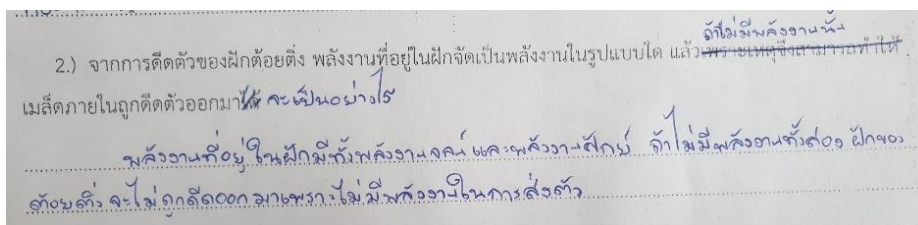 ถ้าไม่มีพลังงานนั้น
2.) จากการดีดตัวของฝักต้อยติ่ง พลังงานที่อยู่ในฝักจัดเป็นพลังงานในรูปแบบใด แล้วเพราะเหตุจึงสามารถทำให้
เมล็ดภายในถูกดีดตัวออกมาได้ จะเป็นอย่างไร
พลังงานที่อยู่ในฝักมีทั้งพลังงานจลน์และพลังงานศักย์ ถ้าไม่มีพลังงานทั้งสอง ฝักของ
ต้อยติ่งจะไม่ถูกดีดออกมาเพราะไม่มีพลังงานในการส่งตัว